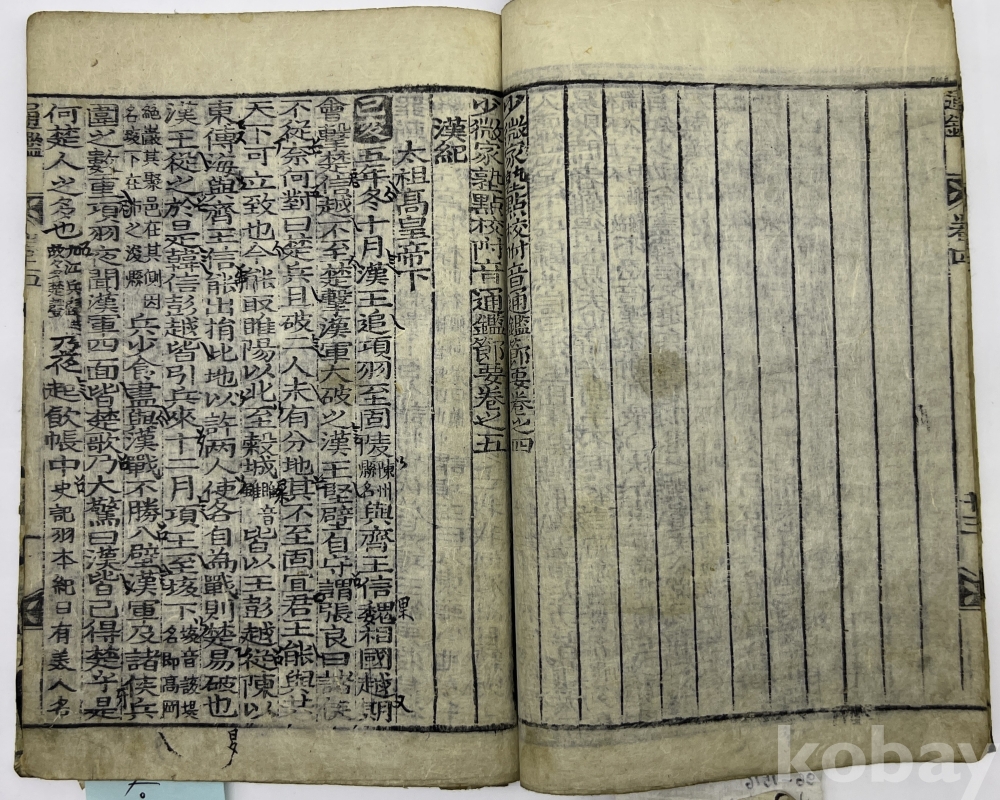 通鑑 卷四
少微家塾點校附音通鑑節要卷之四
少微家塾點校附音通鑑節要卷之五
漢紀
太祖高皇帝下
己亥五年冬十月漢王追項羽至固陵陳州縣名與齊王信魏相國越期
會擊楚信越不至楚擊漢軍大破之漢王堅壁自守謂張良曰諸侯
不從奈何對曰楚兵且破二人未有分地其不至固宜君王能與共
天下可立致也今能取睢陽以北至穀城睢音雖皆以王彭越從陳以
東傅海與齊王信能出捐此地以許兩人使各自為戰則楚易破也
漢王從之於是韓信彭越皆引兵來十二月項王至垓下垓音該堤名即高岡
絶巖其聚邑在其側因名垓下在沛之洨縣兵少食盡與漢戰不勝入壁漢軍及諸侯兵
圍之數重項羽夜聞漢軍四面皆楚歌乃大驚曰漢皆已得楚乎是
何楚人之多也乃夜起飲帳中史記羽本紀曰有美人名
通鑑 五
kobay